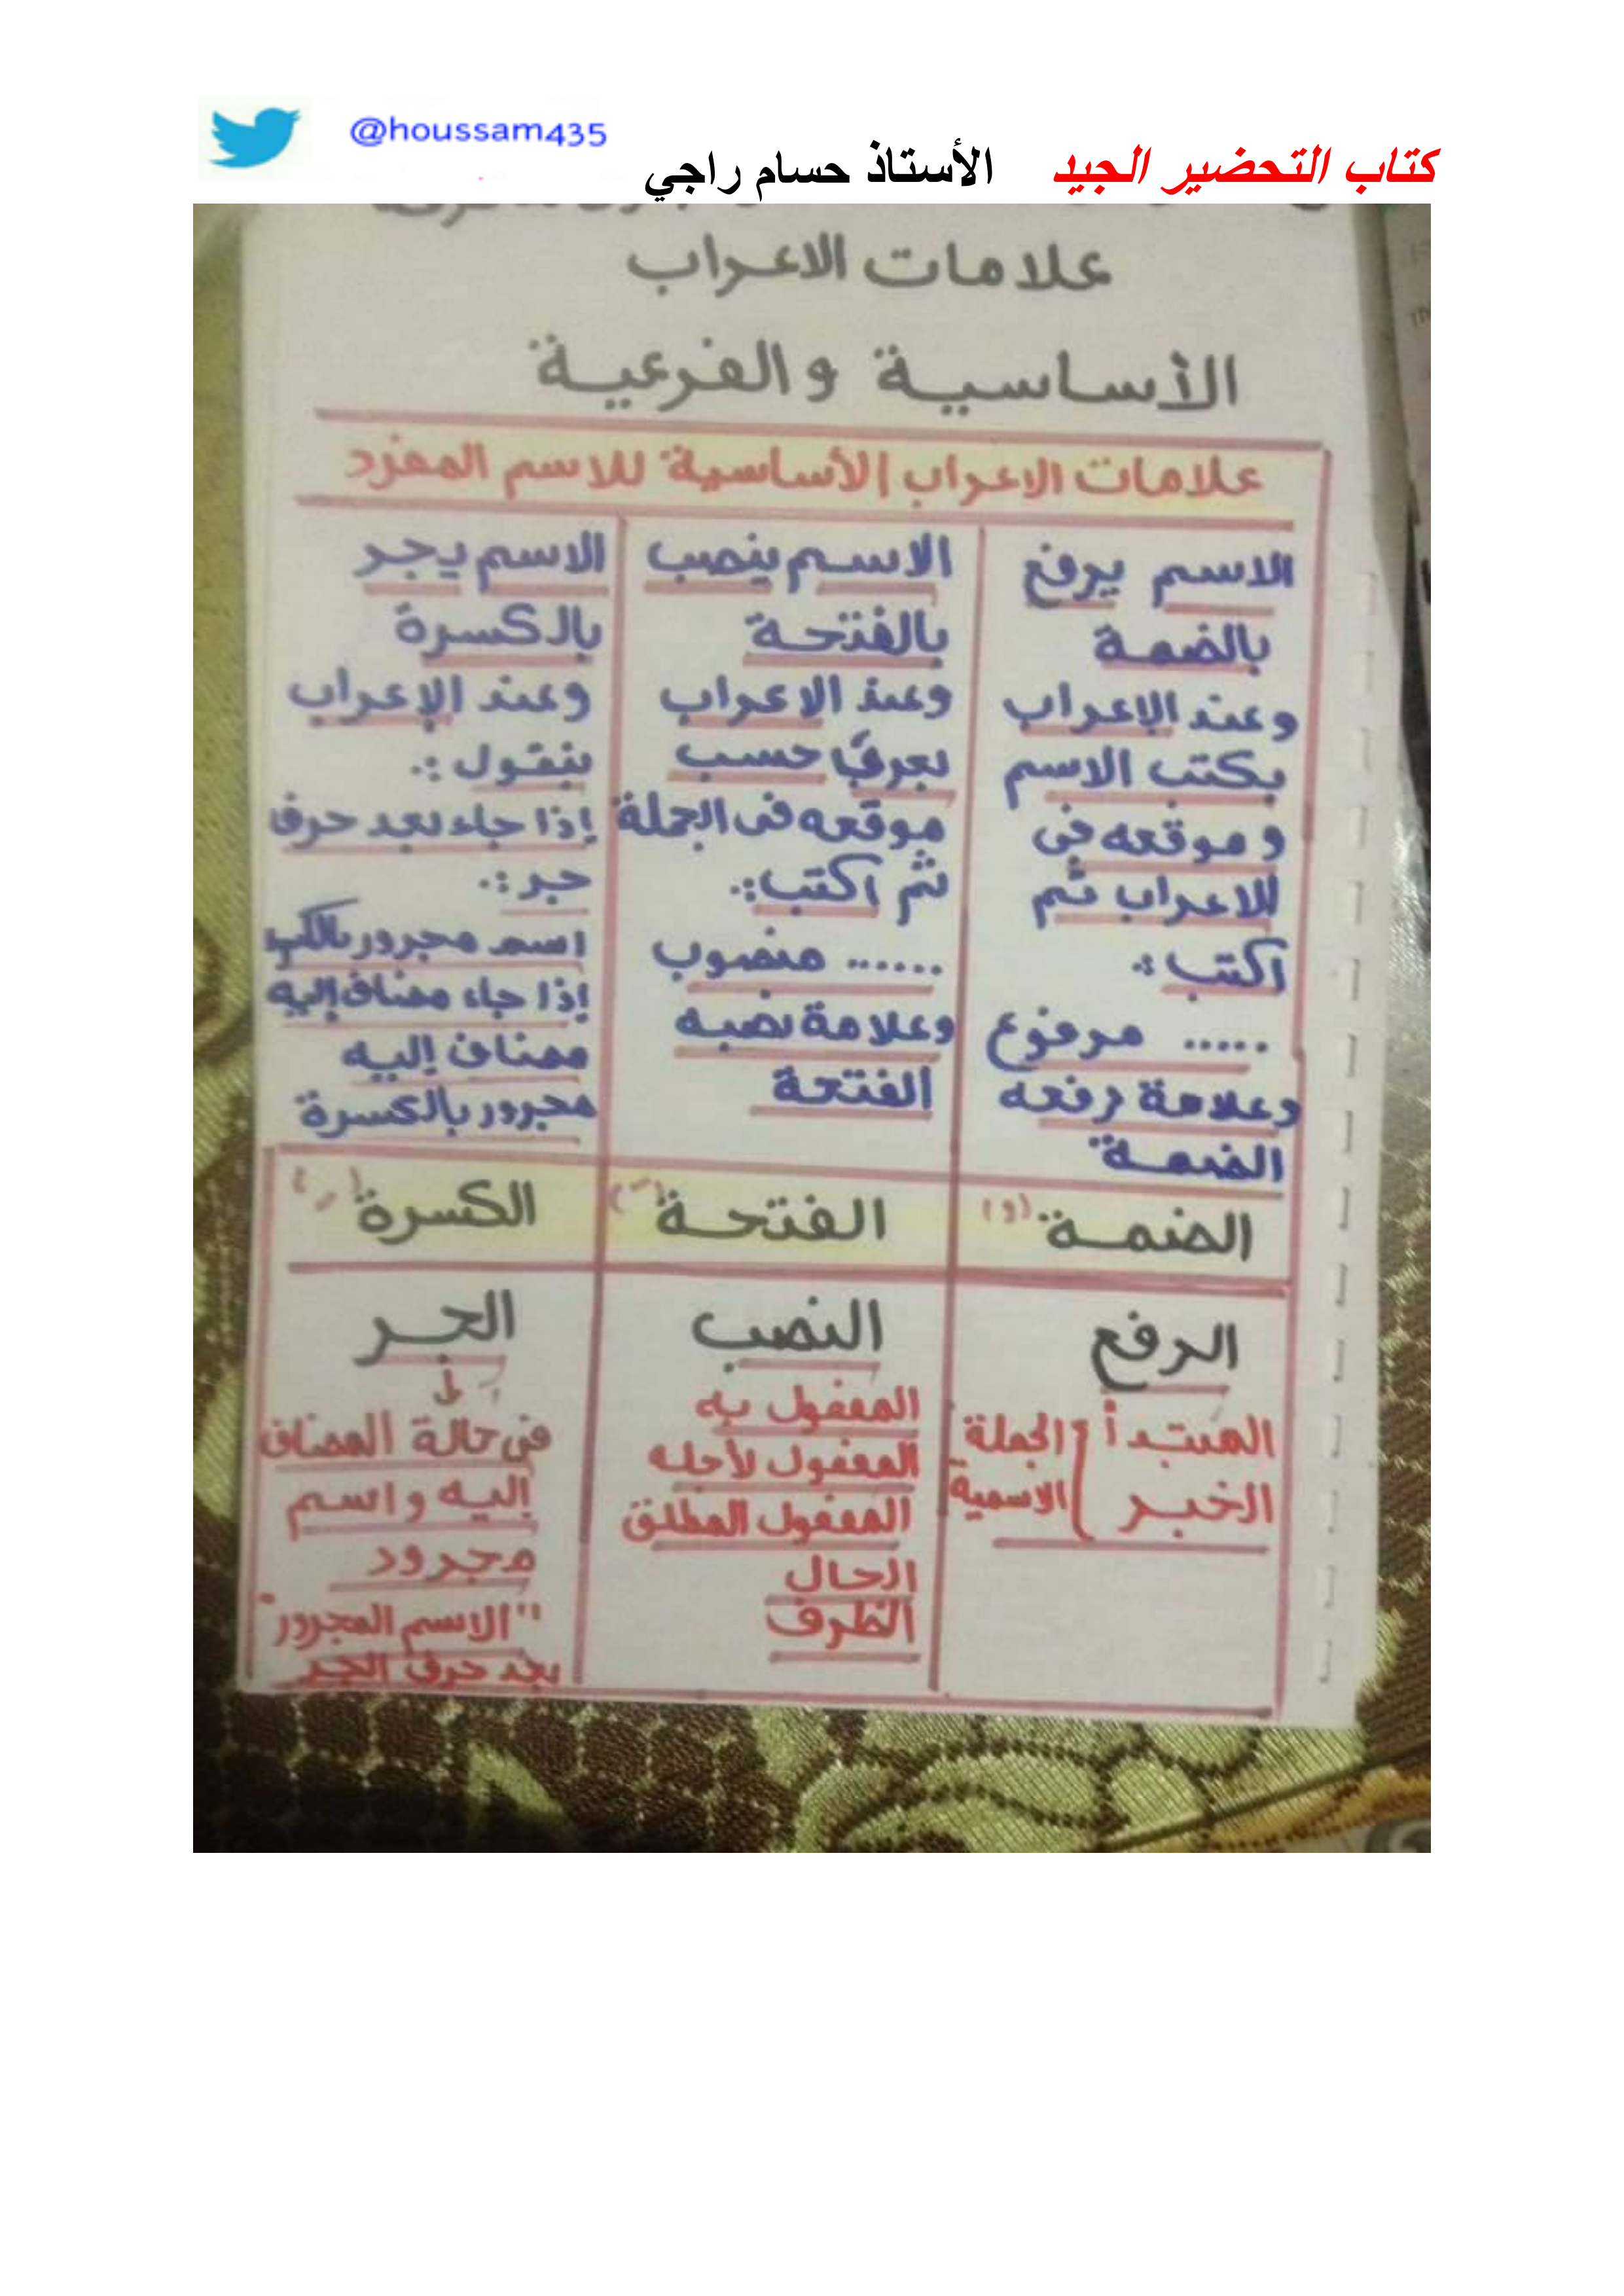 @houssam435
كتاب التحضير الجيد الأستاذ حسام راجي
علامات الاعراب
الأساسية والفرعية
علامات الاعراب الأساسية للاسم المفرد
الاسم يرفع
بالضمة
وعند الإعراب
يكتب الاسم
و موقعه فى
الاعراب ثم
اكتب :.
..... مرفوع
وعلامة رفعه
الضمة
الاسم ينصب
بالفتحة
وعند الاعراب
يعرف حسب
موقعه فى الجملة
ثم اكتب :.
...... منصوب
وعلامة نصبه
الفتحة
الاسم يجر
بالكسرة
وعند الإعراب
بنقول :.
إذا جاء بعد حرف
جر :.
اسم مجرور
إذا جاء مضاف إليه
مضاف إليه
مجرور بالكسرة
الضمة (و)
الفتحة (-)
الكسرة (-)
الرفع
المبتدأ
الخبر
الجملة
الاسمية
النصب
المفعول به
المفعول لأجله
المفعول المطلق
الحال
الظرف
الجر
فى حالة المضاف
إليه و اسم
مجرور
"الاسم المجرور"
بعد حرف الجر